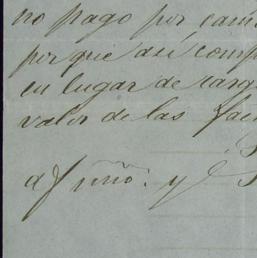 no pago por cam
por que así comp
en lugar de carg
valor de las fac
af umo. y S